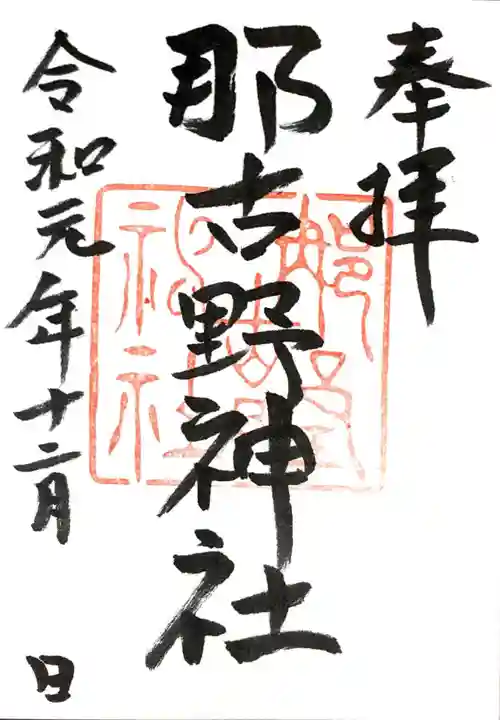 奉拝
那古野神社
令和元年十二月 日